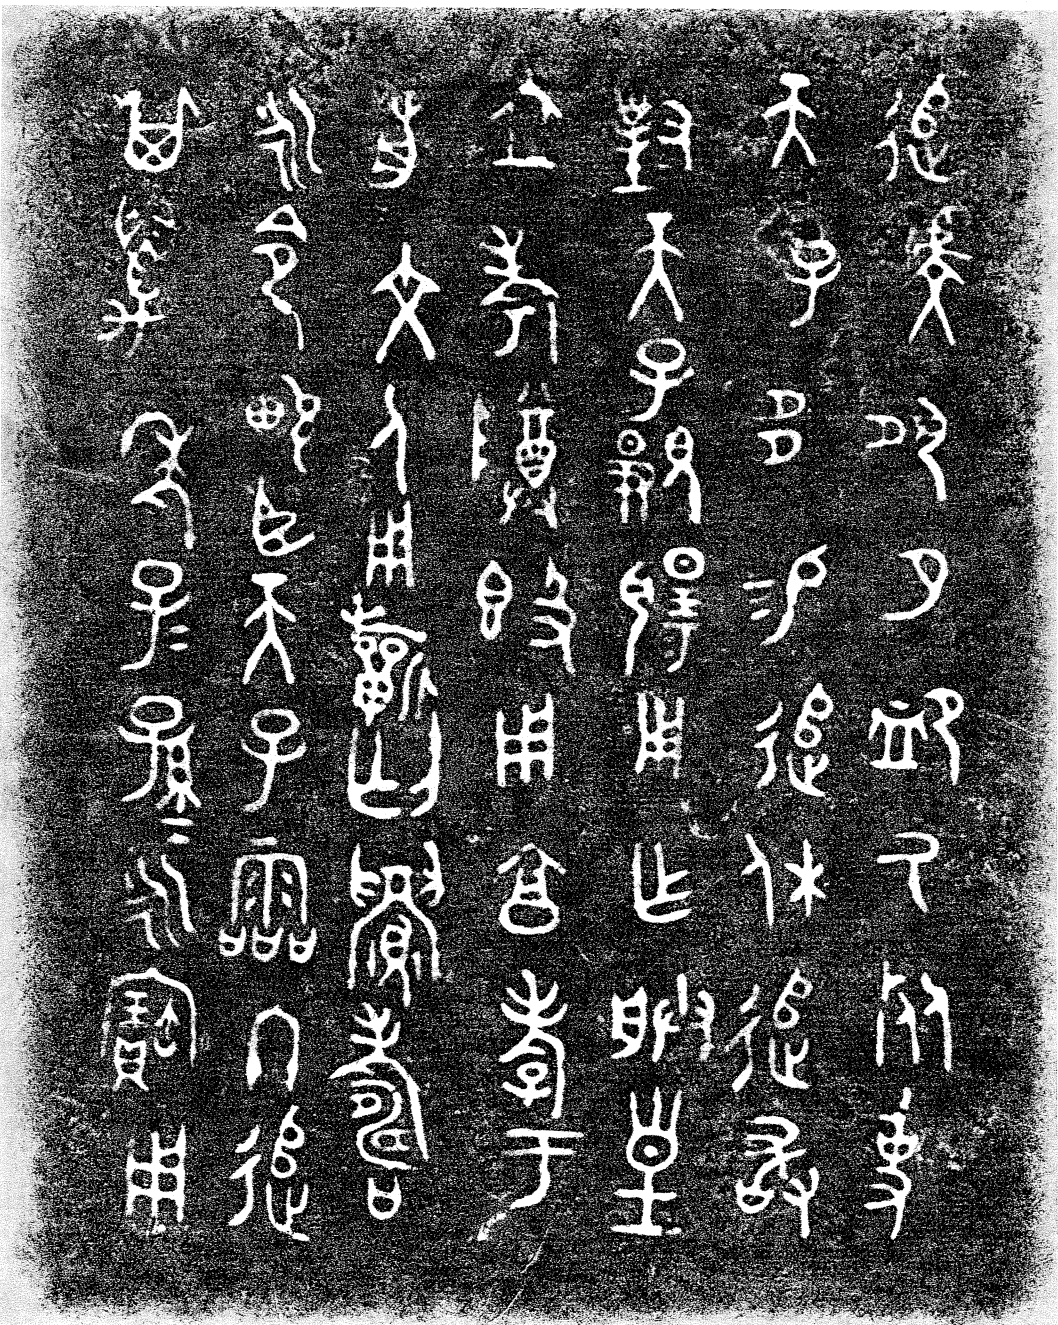 追虔夙夕卹厥死事
天子多易追休追敢
對天子顯揚用乍朕皇
且考尊簋用享孝于
前文人用祈匄眉壽
永令畯臣天子霝冬追
其萬年子=孫=永寶用